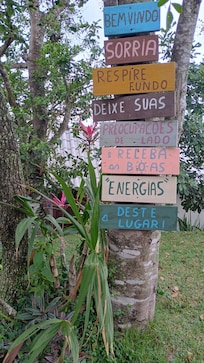 BEMVINDO
SORRIA
RESPIRE
FUNDO
DEIXE SUAS
PREOCUPAÇÕES
DE LADO
E RECEBA
AS BOAS
"ENERGIAS"
DESTE
LUGAR!